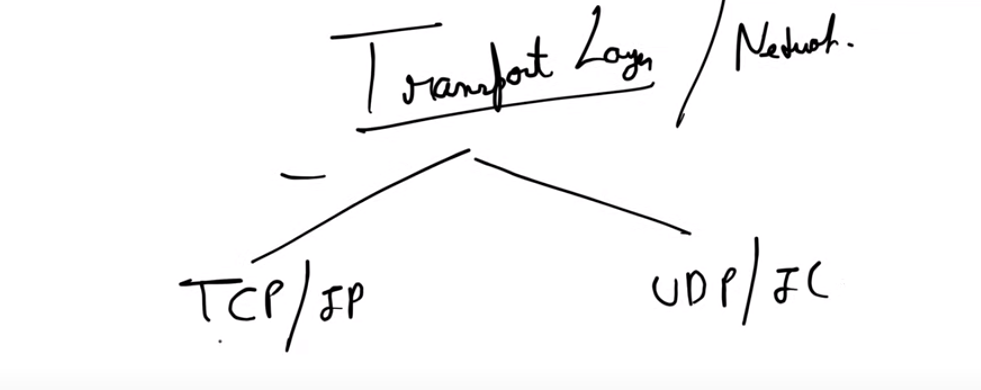 Transport Layer / Network.
TCP/IP UDP/IC